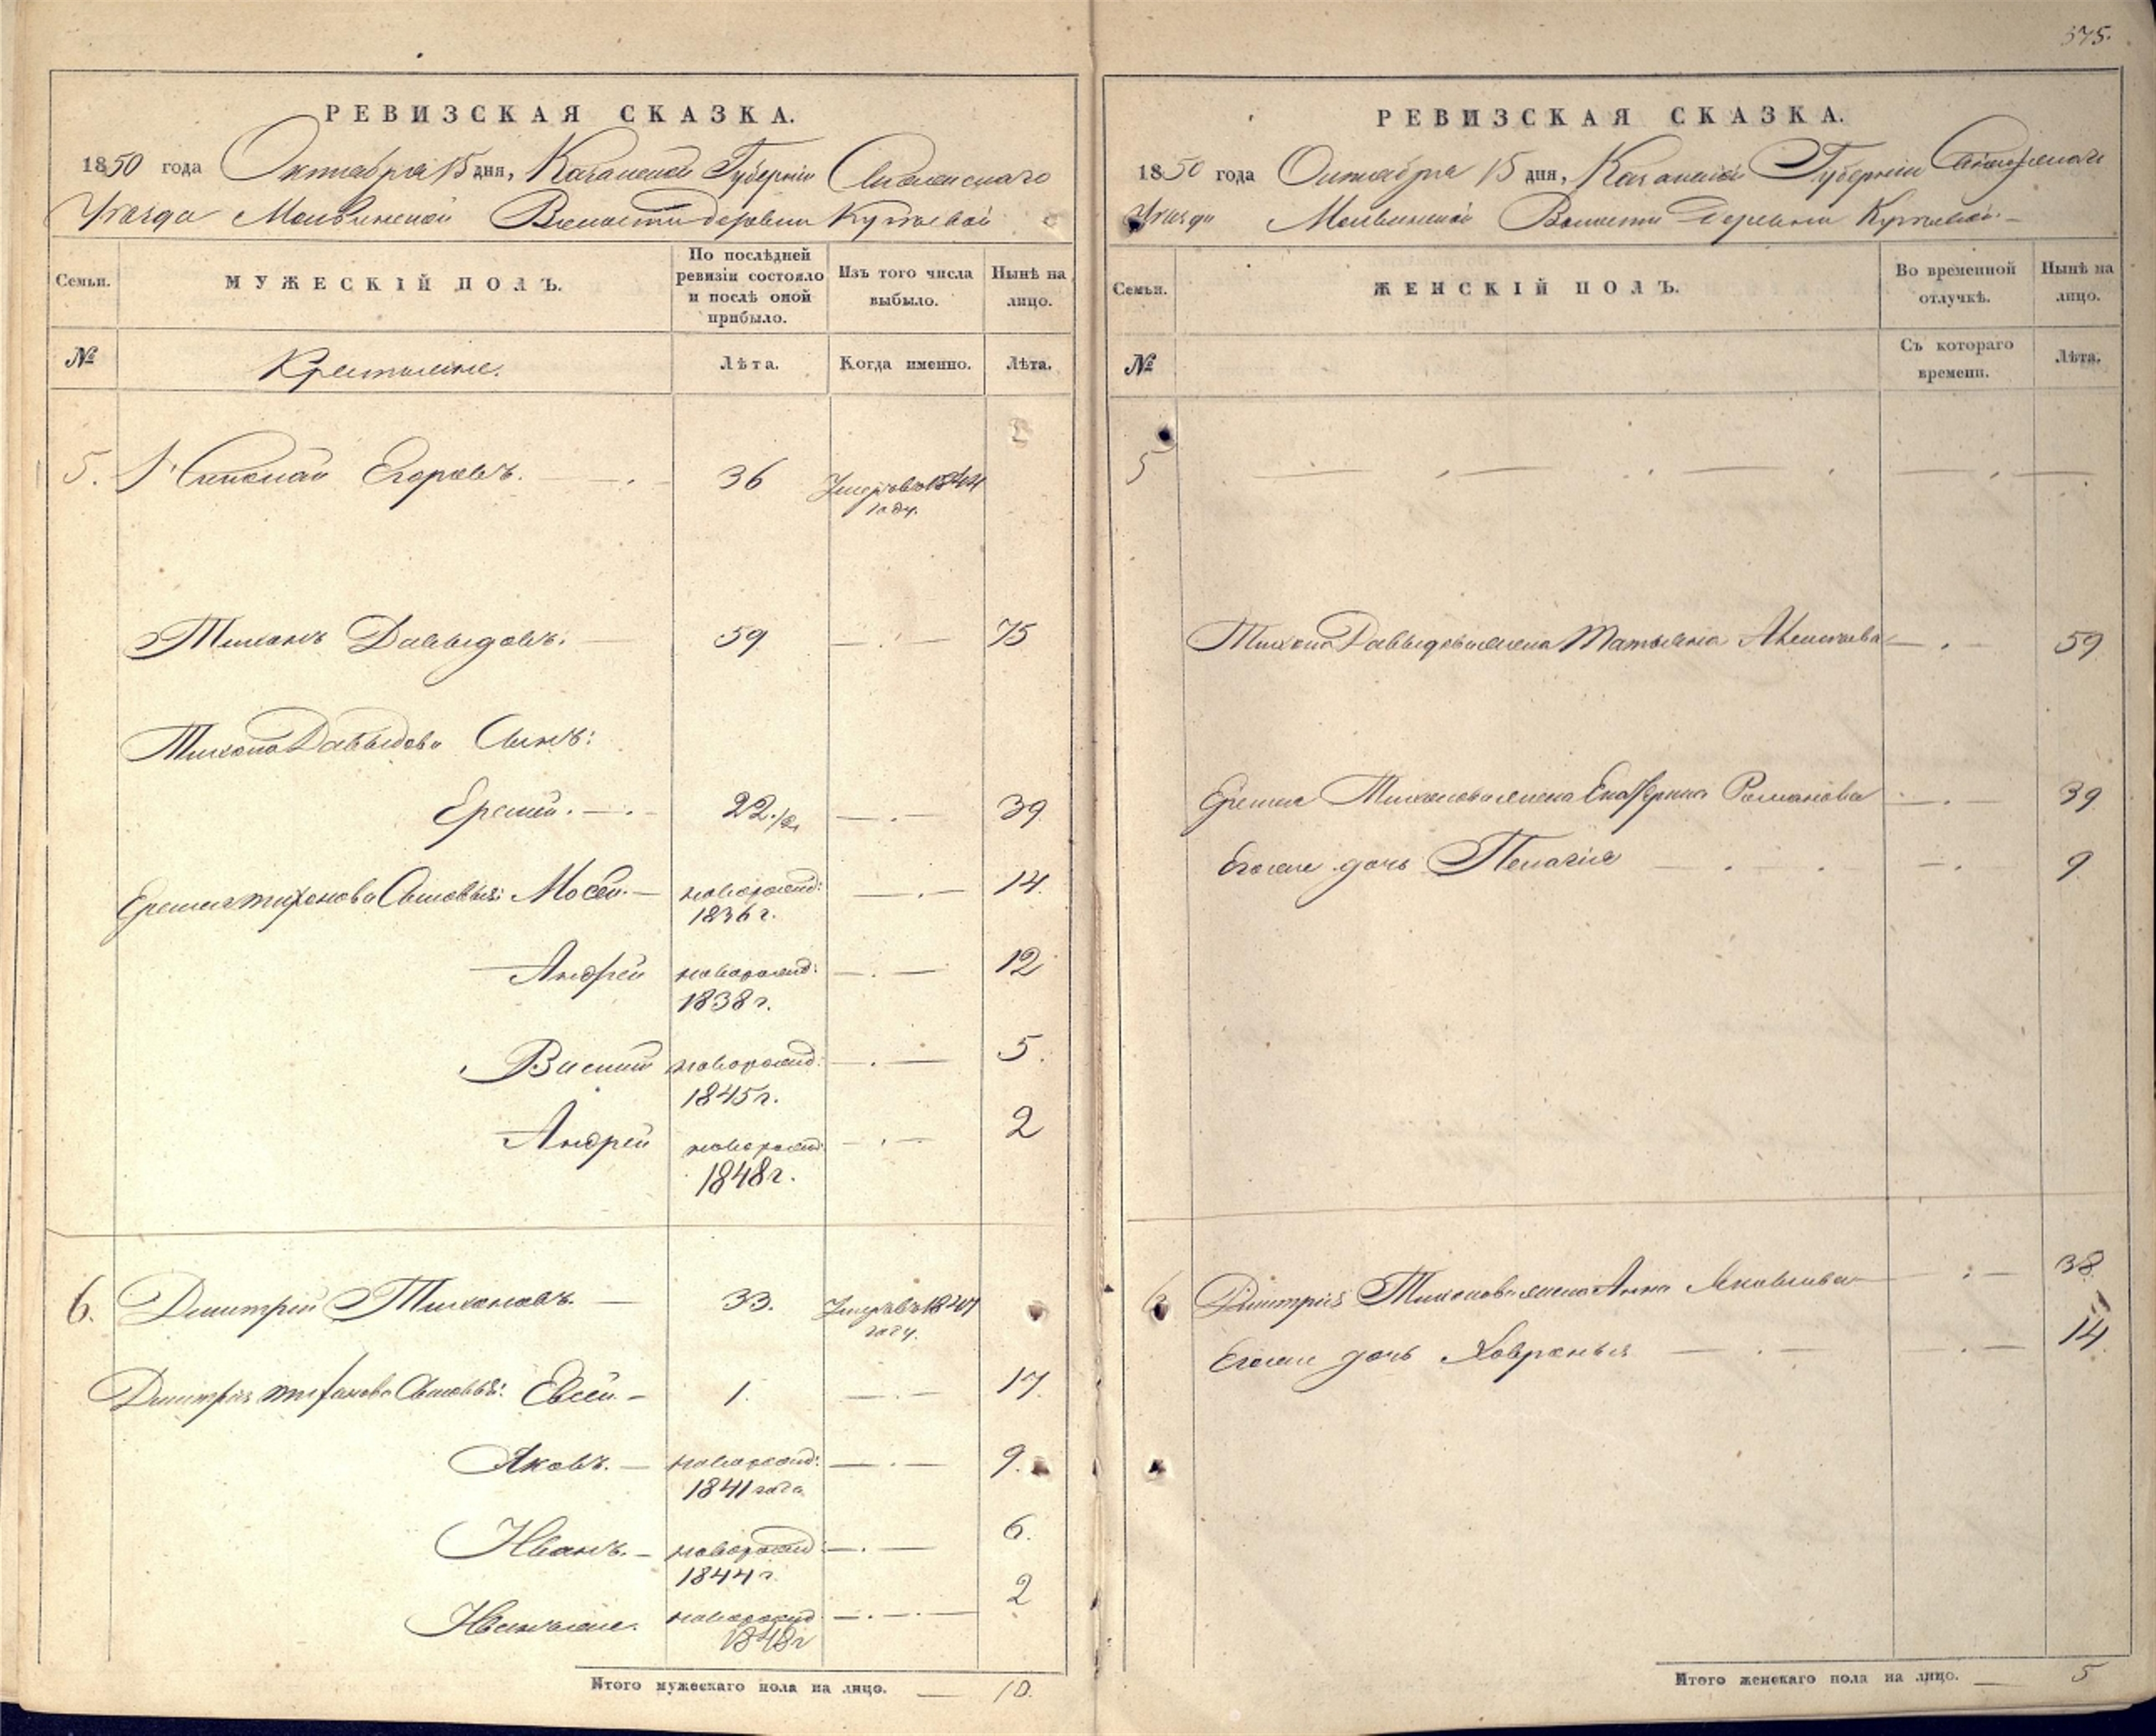 375.
РЕВИЗСКАЯ СКАЗКА.
1850 года Октября 15 дня, Казанской Губерніи
Уѣзда Волости деревни
Семьи. МУЖЕСКІЙ ПОЛЪ. По послѣдней ревизіи состояло и послѣ оной прибыло. Изъ того числа выбыло. Нынѣ на лицо.
№ Крестьяне. Лѣта. Когда именно. Лѣта.
5. Николай Егоровъ. 36 Умеръ въ 1844 году.
Тихонъ Давыдовъ. 59 75
Тихона Давыдова Сынъ:
Еремей. 22 1/2 39
Еремея Тихонова Сыновья: Мосей. новорожд: 1836 г. 14.
Андрей новорожд: 1838 г. 12
новорожд: 1845 г. 5.
Андрей новорожд: 1848 г. 2
6. Дмитрій Тихоновъ. 33. Умеръ въ году.
Дмитрія Тихонова Сыновья: Евсей. 1. 17.
Яковъ. новорожд: 1841 года 9.
Иванъ. новорожд: 1844 г. 6.
новорожд 1848 г 2
Итого мужескаго пола на лицо. 10.
РЕВИЗСКАЯ СКАЗКА.
1850 года Октября 15 дня, Казанской Губерніи
Уѣзда Волости Деревни
Семьи. ЖЕНСКІЙ ПОЛЪ. Во временной отлучкѣ. Нынѣ на лицо.
№ Съ котораго времени. Лѣта.
5
Тихона Давыдова жена Татьяна 59
Еремея Тихонова жена Екатерина Романова 39
Егоже дочь Пелагія 9
6 Дмитрія Тихонова жена Анна Яковлева 38
Егоже дочь Ховронья 14
Итого женскаго пола на лицо. 5